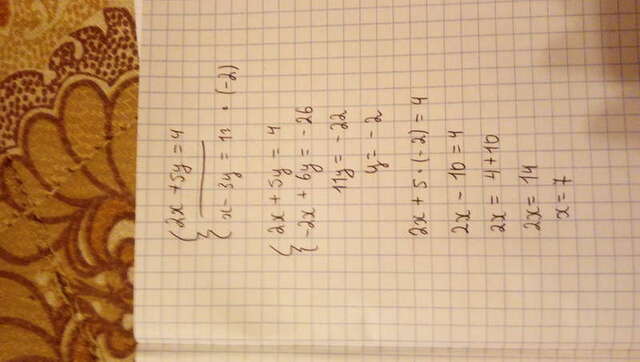 { 2x + 5y = 4
{ x - 3y = 13 · (-2)
{ 2x + 5y = 4
{ -2x + 6y = -26
11y = -22
y = -2
2x + 5 · (-2) = 4
2x - 10 = 4
2x = 4 + 10
2x = 14
x = 7